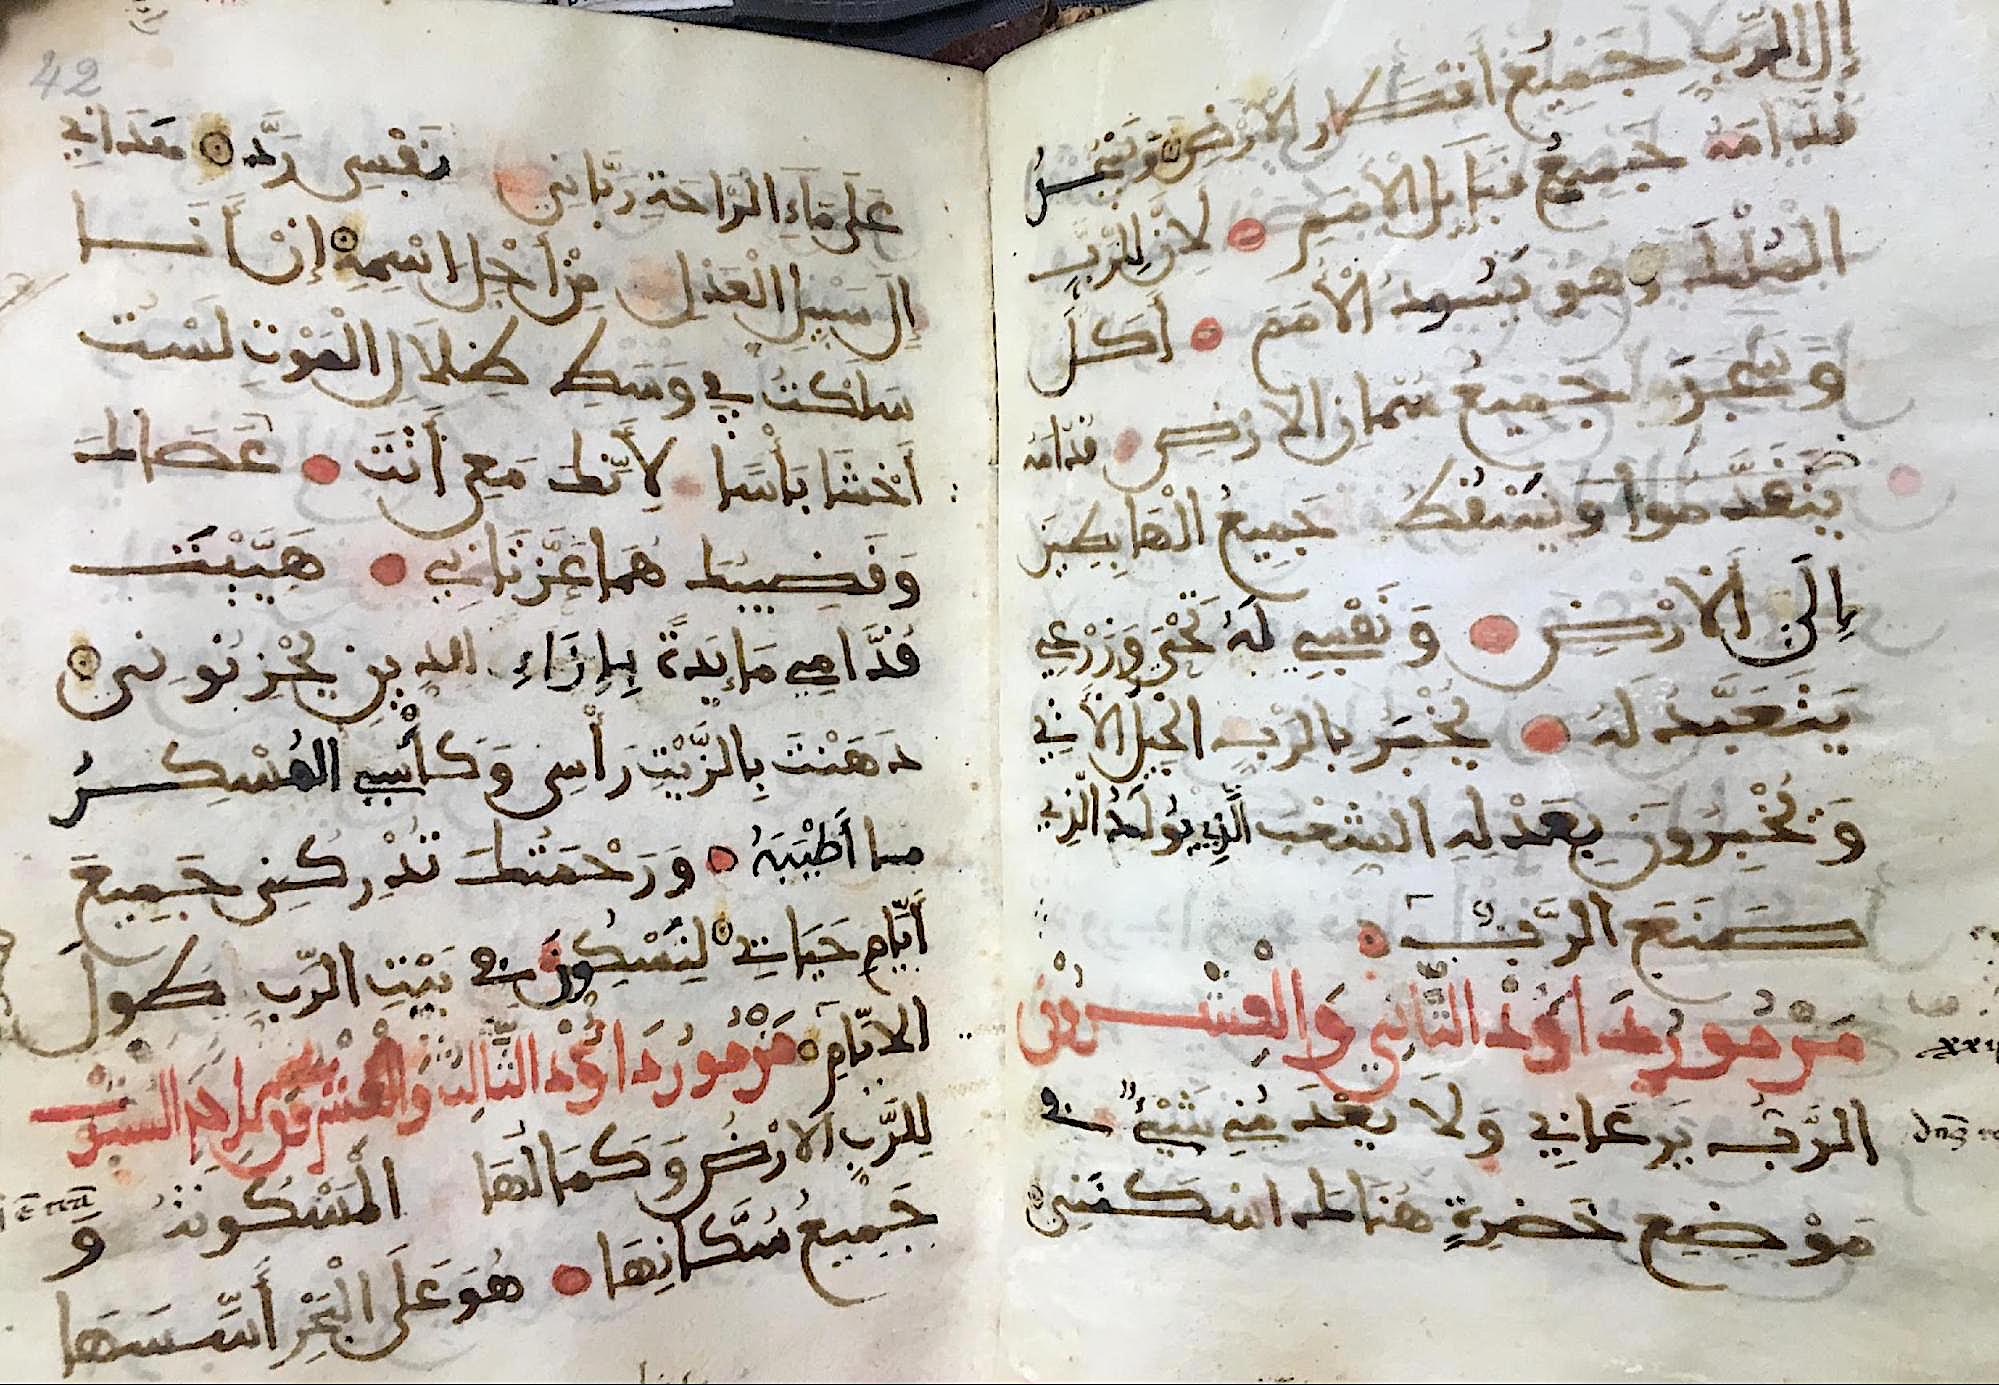 إلى الرَّبِ جَمِيعُ أفْكَار الأرْضِ وَيَسْجُدُ
قدامَهُ جَمِيعُ قبَايِل الأمَمِ لأنّ لِلرَّبِّ
المُلْكَ وهو يَسُودُ الأمَمَ أَكَلَ
وَسَجَدَ جَمِيعُ سُمان الارْضِ قدّامَهُ
يتَقَدَّمُوا وَيَسْقُطُ جَمِيعُ الْهَابِطِينَ
إلَى الأرْضِ وَنَفْسِي لَهُ تَحْيَى وَزَرْعِي
يَتَعَبَّدُ لَهُ يُخْبَرُ بالرَّبِ الجِيلُ الأَتِي
وَيُخْبِرُونَ بِعَدْلِهِ الشَعْبَ الَّذِي يُولَدُ الَّذِي
صَنَعَ الرَّبُّ
مَزْمُورُ دَاوُودْ الثَّانِي وَالْعِشْرُونْ
xxii
الرَّبُّ يَرْعَانِي وَلَا يَعْدَمُنِي شَيْءٌ في
مَوْضِعِ خَضِرَةٍ هُنَالِكَ اسْكَنَنِي
42
عَلَى مَاءِ الرَّاحَةِ رَبَّانِي نَفْسِي رَدَّ هَدَانِي
إلى سَبِيلِ الْعَدْلِ مِنْ أَجْلِ اسْمِهِ إنْ أَنَا
سَلَكْتُ فِي وَسَطِ ظِلَالِ الْمَوْتِ لَسْتُ
أَخْشَا بَأْسًا لأَنَّكَ مَعِي أَنْتَ عَصَاكَ
وَقَضِيبُكَ هُمَا عَزَّتَانِي هَيَّيْتَ
قُدَّامِي مَايِدَةً بِإزَاءِ الَّذِينَ يُحْزِنُونَنِي
دَهَنْتَ بِالزَّيْتِ رَأْسِي وَكَأْسِي الْمُسْكِرُ
مَا أَطْيَبَهُ وَرَحْمَتُكَ تُدْرِكُنِي جَمِيعَ
أَيَّامِ حَيَاتِي لِنَسْكُونَ فِي بَيْتِ الرَّبِ طُولَ
الأَيَّامِ مَزْمُورُ دَاوُودْ الثَّالِثُ وَالْعِشْرُونْ
لِلرَّبِ الأرْضُ وَكَمَالُهَا الْمَسْكُونَةُ وَ
جَمِيعُ سُكَّانِهَا هُوَ عَلَى الْبَحْرِ أَسَّسَهَا